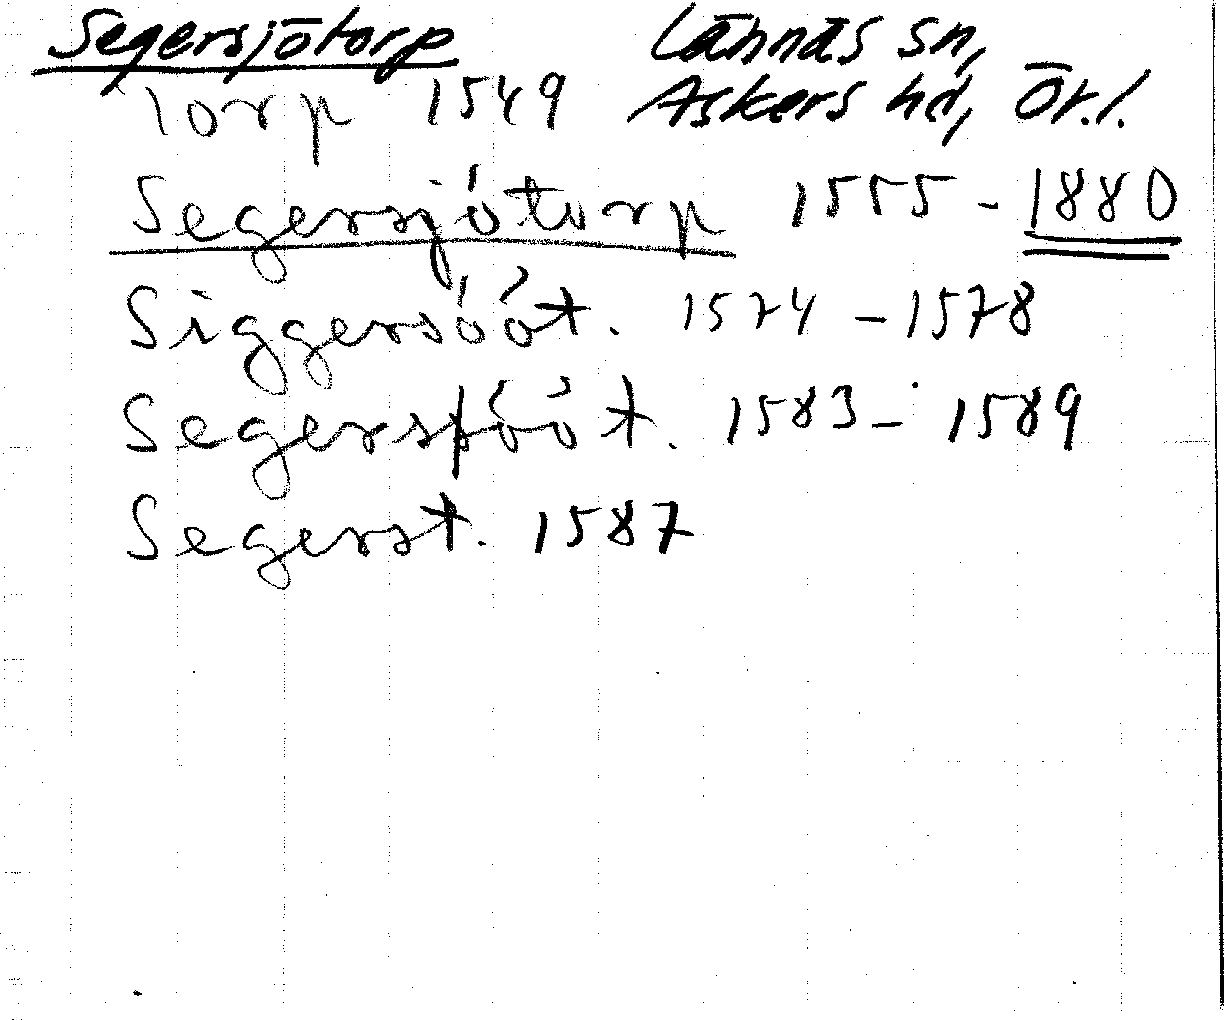 Segersjötorp Lännäs sn,
Askers hd, Ör.l.
Torp 1549
Segersjötorp 1555 - 1880
Siggersööt. 1574 - 1578
Segersjóót. 1583 - 1589
Segerst. 1587